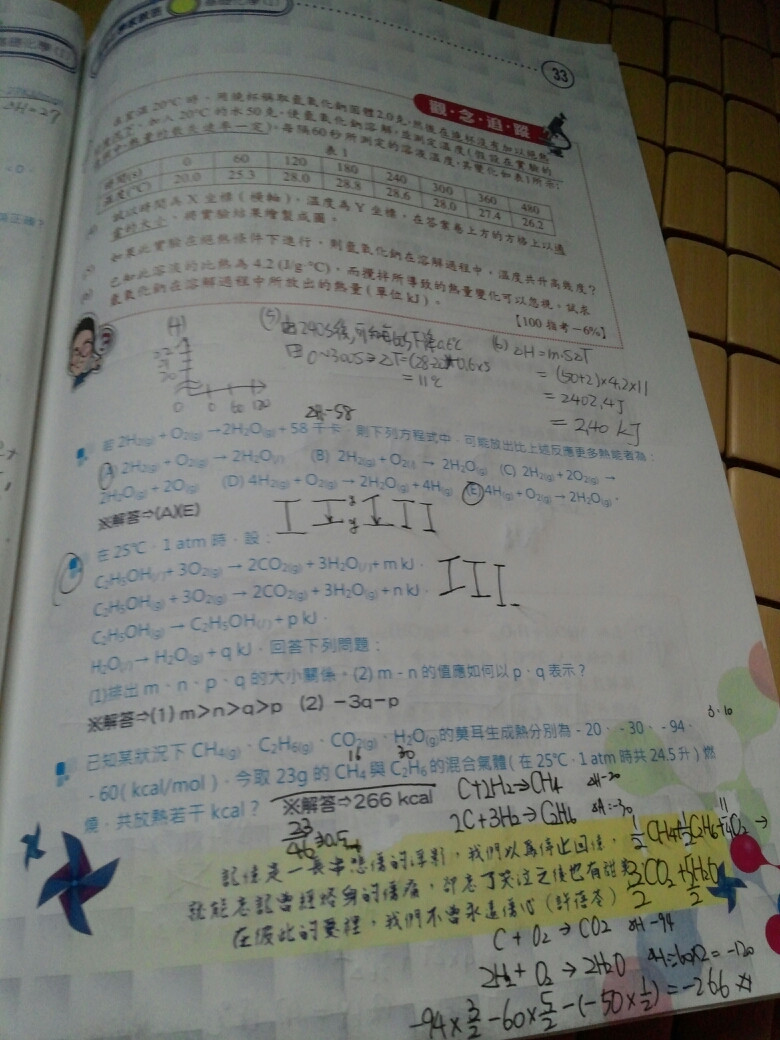 33
觀·念·追·蹤
在室溫20℃時，用燒杯稱取氫氧化鈉固體2.0克，然後在燒杯沒有加以絕熱
的情況下，加入20℃的水50克，使氫氧化鈉溶解，並測定溫度(假設在實驗的
過程中，熱量的散失速率一定)，每隔60秒所測定的溶液溫度，其變化如表1所示：
表1
時間(s) 0 60 120 180 240 300 360 480
溫度(℃) 20.0 25.3 28.0 28.8 28.6 28.0 27.4 26.2
試以時間為X坐標(橫軸)，溫度為Y坐標，在答案卷上方的方格上以適
當的大小，將實驗結果繪製成圖。
如果此實驗在絕熱條件下進行，則氫氧化鈉在溶解過程中，溫度共升高幾度？
已知此溶液的比熱為4.2(J/g·℃)，而攪拌所導致的熱量變化可以忽視，試求
氫氧化鈉在溶解過程中所放出的熱量(單位kJ)。
【100指考-6%】
(4)
0 60 120
(5) 由240s後，可知每60s下降0.6℃
0~300s⇒ΔT=(28-20)+0.6×5
=11℃
(6) ΔH=m·SΔT
=(50+2)×4.2×11
=2402.4J
=2.40 kJ
若2H₂(g)+O₂(g)→2H₂O(g)+58千卡，則下列方程式中，可能放出比上述反應更多熱能者為：
(A) 2H₂(g)+O₂(g)→2H₂O(l) (B) 2H₂(g)+O₂(l)→2H₂O(g) (C) 2H₂(g)+2O₂(g)→
2H₂O(g)+2O(g) (D) 4H₂(g)+O₂(g)→2H₂O(g)+4H(g) (E) 4H(g)+O₂(g)→2H₂O(g)。
※解答⇨(A)(E)
在25℃、1 atm時，設：
C₂H₅OH(l)+3O₂(g)→2CO₂(g)+3H₂O(l)+m kJ、
C₂H₅OH(g)+3O₂(g)→2CO₂(g)+3H₂O(g)+n kJ、
C₂H₅OH(g)→C₂H₅OH(l)+p kJ、
H₂O(l)→H₂O(g)+q kJ，回答下列問題：
(1)排出m、n、p、q的大小關係。(2) m-n的值應如何以p、q表示？
※解答⇨(1) m>n>q>p (2) -3q-p
已知某狀況下CH₄(g)、C₂H₆(g)、CO₂(g)、H₂O(g)的莫耳生成熱分別為-20、-30、-94、
-60(kcal/mol)，今取23g的CH₄與C₂H₆的混合氣體(在25℃、1 atm時共24.5升)燃
燒，共放熱若干kcal？ ※解答⇨266 kcal
16 30
C+2H₂→CH₄ ΔH-20
2C+3H₂→C₂H₆ ΔH=-30
記憶是一長串悲傷的浮影，我們以為停止回憶，
就能忘記曾經路身的傷痛，卻忘了哭泣之後也有甜美
在彼此的愛裡，我們不曾永遠傷心(許蓓苓)
C+O₂→CO₂ ΔH-94
2H₂+O₂→2H₂O ΔH=60×2=-120
-94×3/2-60×5/2-(-50×1/2)=-266